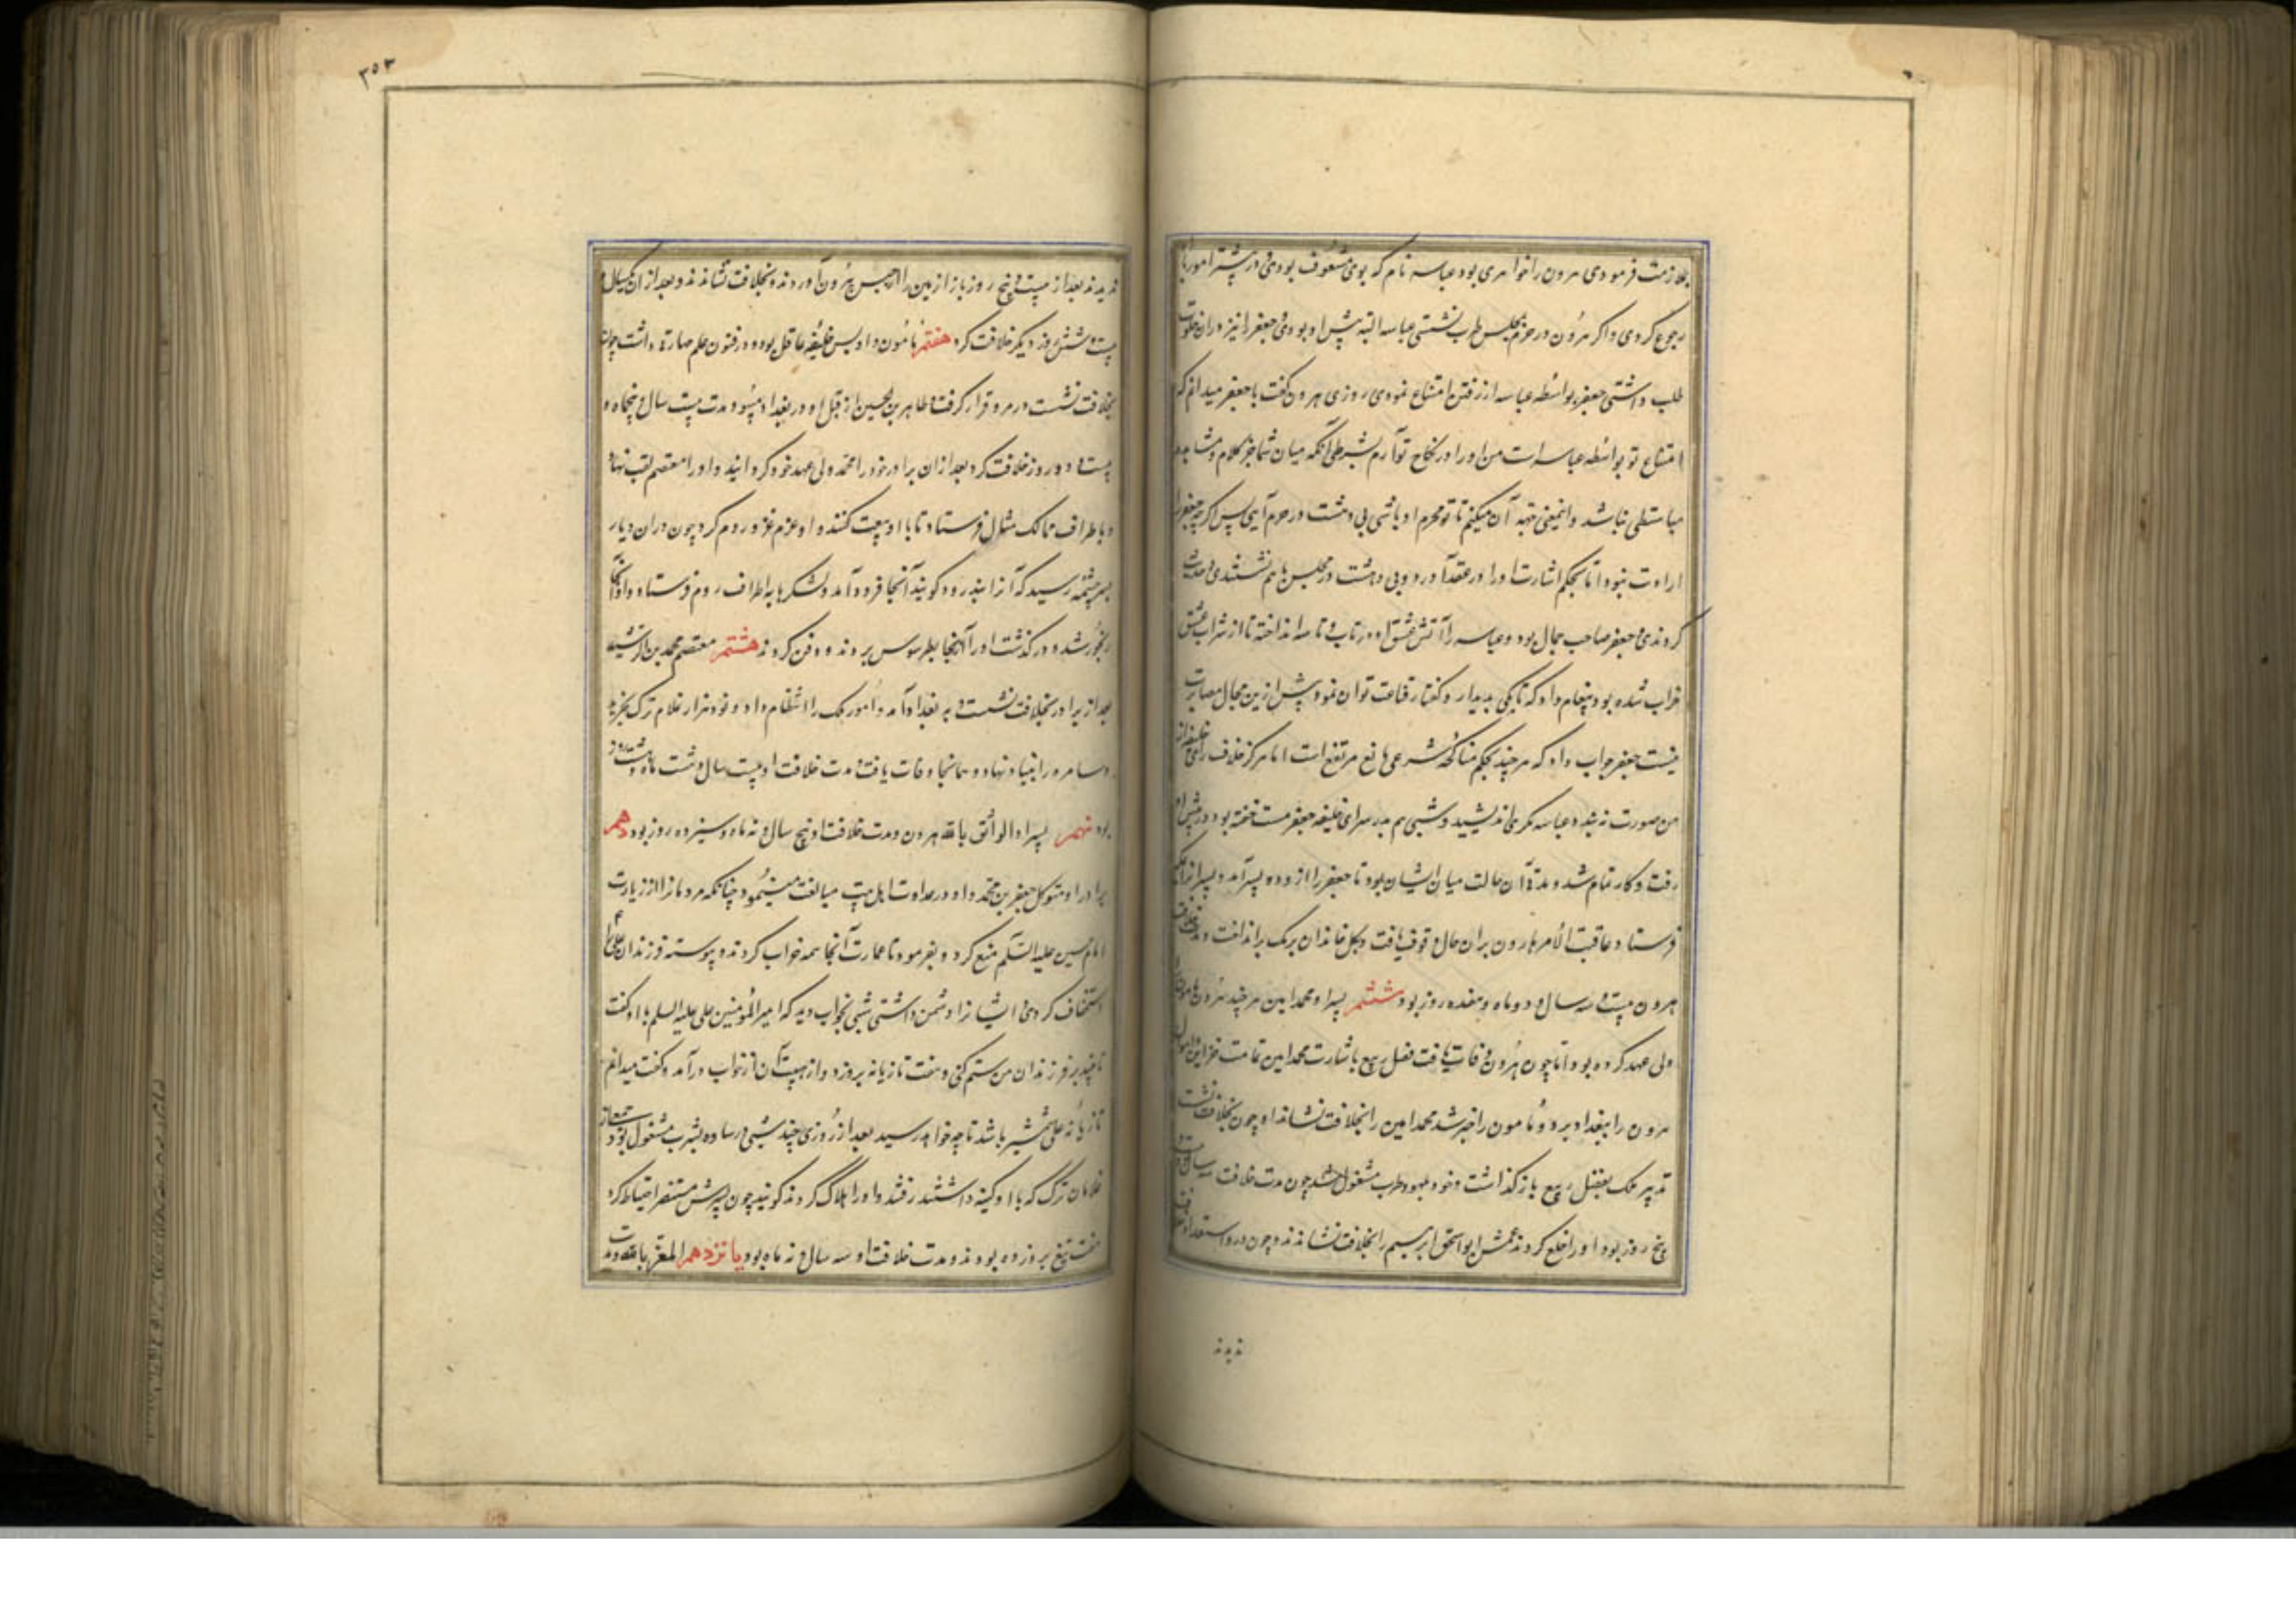 بملازمت فرمودی هرون را خواهری بود عباسه نام که بوی مشعوف بودی و در بیشتر امور با
رجوع کردی و اگر هرون در حرم بمجلس طرب نشستی عباسه البته پیش او بودی و جعفر را نیز در ان خلوت
طلب داشتی جعفر بواسطه عباسه از رفتن امتناع نمودی روزی هرون گفت یا جعفر میدانم که
امتناع تو بواسطه عباسه است من او را در نکاح تو آرم بشرطی آنکه میان شما جز کلام و مشاهده
مباسطتی نباشد و اینمعنی جهة آن میکنم تا تو محرم او باشی بی دهشت در حرم آیی پس اگرچه جعفر را
ارادت نبود اما بحکم اشارت او را در عقد آورد و بی دهشت در مجلس با هم نشستندی و حدیث
کردندی و جعفر صاحب جمال بود و عباسه را آتش عشق او در تاب و تاسه انداخته تا از شراب عشق
خراب شده بود پیغام داد که تا بکی بدیدار و گفتار قناعت توان نمود پیش ازین مجال مصابرت
نیست جعفر جواب داد که هر چند بحکم مناکحه شرعی مانع مرتفع است اما هرگز خلاف رای خلیفه از
من صورت نبندد عباسه مکری اندیشید و شبی هم در سرای خلیفه جعفر مست خفته بود در پیش او
رفت و کار تمام شد و مدة آن حالت میان ایشان بود تا جعفر را ازو دو پسر آمد و پسرانرا بمکه
فرستاد و عاقبة الامر هارون بران حال وقوف یافت و بکل خاندان برمک برانداخت و مدت خلافت
هرون بیست و سه سال و دو ماه و هفده روز بود ششم پسر او محمد امین هر چند هرون مامون را
ولی عهد کرده بود اما چون هرون وفات یافت فضل ربیع باشارت محمد امین تمامت خزاین و اموال
هرون را ببغداد برد و مامون را خبر شد محمد امین را بخلافت نشاند او چون بخلافت نشست
تدبیر ملک بفضل ربیع باز گذاشت و خود بلهو و طرب مشغول شد چون مدت خلافت سه سال و
پنج روز بود او را خلع کردند عمش ابو اسحق ابرهیم را بخلافت نشاندند و چون در و استعداد
ندیدند
۳۵۳
ندیدند بعد از بیست و پنج روز باز امین را از حبس بیرون آوردند و بخلافت نشاندند و بعد از ان یکسال و
بیست و شش روز دیگر خلافت کرد هفتم مامون و او بس خلیفه عاقل بود و در فنون علم مهارة داشت چون
بخلافت نشست در مرو قرار گرفت و طاهر بن الحسین از قبل او در بغداد میبود و مدت بیست سال و پنجماه و
بیست و دو روز خلافت کرد بعد از ان برادر خود را محمد ولی عهد خود گردانید و او را معتصم لقب نهاد
و باطراف ممالک مثال فرستاد تا با او بیعت کنند و او عزم غزو روم کرد چون در ان دیار
بسر چشمه رسید که آنرا بذرود گویند آنجا فرود آمد و لشکرها باطراف روم فرستاد و او آنجا
رنجور شد و در گذشت او را از آنجا بطرسوس بردند و دفن کردند هشتم معتصم محمد بن الرشید
بعد از برادر بخلافت نشست و به بغداد آمد و امور ملک را انتظام داد و نود هزار غلام ترک بخرید
و سامره را بنیاد نهاد و همانجا وفات یافت مدت خلافت او بیست سال و هشت ماه و هشت روز
بود نهم پسر او الواثق بالله هرون و مدت خلافت او پنج سال و نه ماه و سیزده روز بود دهم
برادر او متوکل جعفر بن محمد و او در عداوت اهل بیت مبالغت مینمود چنانکه مردمانرا از زیارت
امام حسین علیه السلم منع کرد و بفرمود تا عمارت آنجا همه خراب کردند و پیوسته فرزندان علی را
استخفاف کردی و ایشانرا دشمن داشتی شبی بخواب دید که امیر المؤمنین علی علیه السلم با او گفت
تا چند بر فرزندان من ستم کنی و هفت تازیانه برو زد و از هیبت آن از خواب در آمد و گفت میدانم
تازیانه علی شمشیر باشد تا چه خواهد رسید بعد از روزی چند شبی در ساده بشرب مشغول بود جمعی از
غلامان ترک که با او کینه داشتند رفتند و او را هلاک کردند گویند چون پسرش منتصر احتیاط کرد
هفت تیغ برو زده بودند و مدت خلافت او سه سال و نه ماه بود یازدهم المعز بالله و مدت